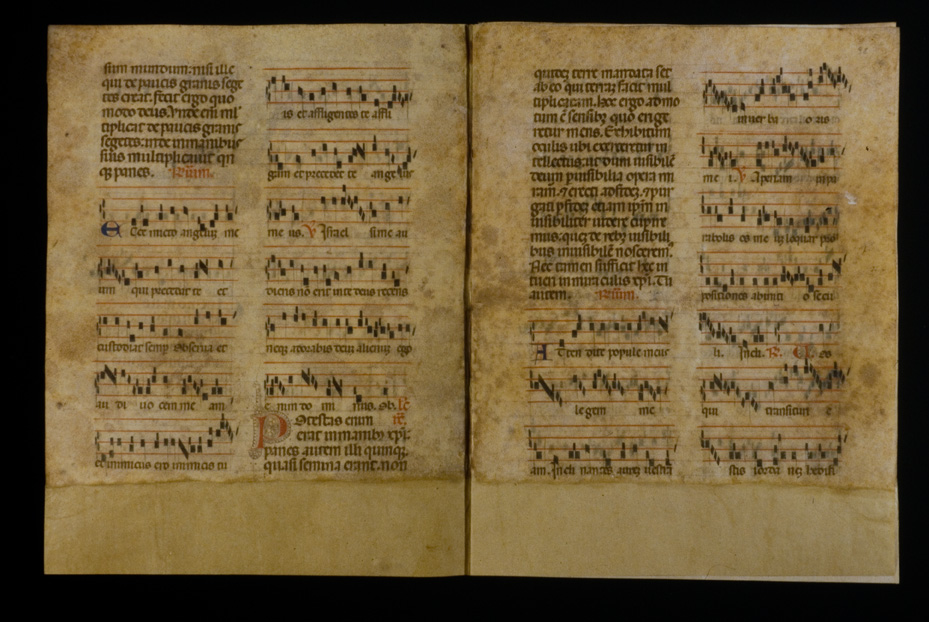 sum mundum: nisi ille
qui de paucis granis sege
tes creat. fecit ergo quo
modo deus. Unde enim ml
tiplicat de paucis granis
segetes: inde in manibus
suis multiplicavit qn
q; panes.
Ecce mitto angelum me
um qui precedat te et
custodiat semp observa et
au di vocem me am
et inimicus ero inimicis tu
is et affligentes te affli
gam et precedet te angelus
me us. V Israel si me au
dieris no erit in te deus recens
neq; adorabis deum alienum ego
e nim do mi nus. Ob.
Potestas enim
erat in manib; xpi.
panes autem illi quinq;
quasi semina erant. non
quidez terre mandata set
ab eo qui terram facit mul
tiplicata. hec ergo admo
tum e sensib; quo erige
retur mens. Exhibitum
oculis ubi exercetur in
tellectus: ut
deum p visibilia opera mi
ram. et erecti ad fidez et pur
gati p fidez etiam ipm in
visibiliter videre cupere
mus. quez de reb; visibili
bus invisibile nosceremus.
Nec tamen sufficit hec in
tueri in miraculis xpi.
Attendite popule meus
legem me
am. Incli nate aurez vestra
in ver ba oris
me i. V Aperiam in pa
rabolis os meum loquar pro
positiones ab initi o secu
li. Incli. R.
qui transituri e
stis iorda nez